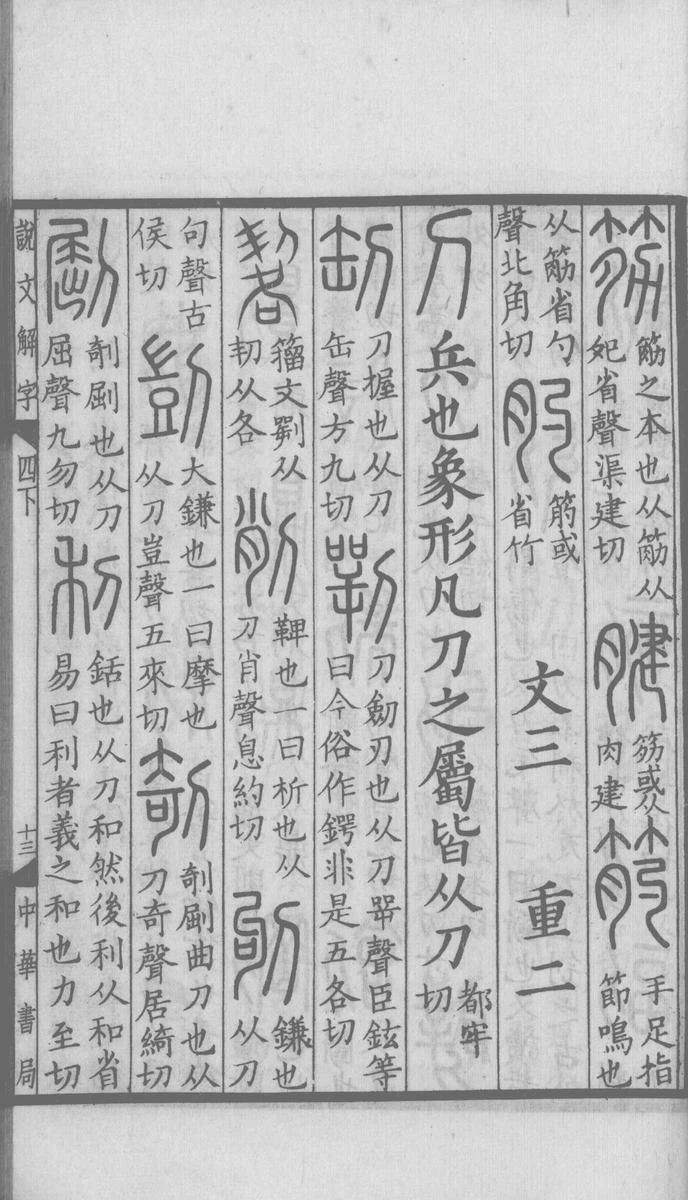 筋之本也从筋从
夗省聲渠建切
腱
笏或从
肉建
手足指
節鳴也
从筋省勺
聲北角切
肑
筋或
省竹
文三
重二
刀
兵也象形凡刀之屬皆从刀
都牢
切
刀握也从刀
缶聲方九切
㓵
刀劒刃也从刀咢聲臣鉉等
曰今俗作鍔非是五各切
籒文㓵从
㓞从各
削
鞞也一曰析也从
刀肖聲息約切
鎌也
从刀
句聲古
侯切
剴
大鎌也一曰摩也
从刀豈聲五來切
剞
剞𠜾曲刀也从
刀奇聲居綺切
𠜾
剞𠜾也从刀
屈聲九勿切
利
銛也从刀和然後利从和省
易曰利者義之和也力至切
說文解字
四下
十三
中華書局